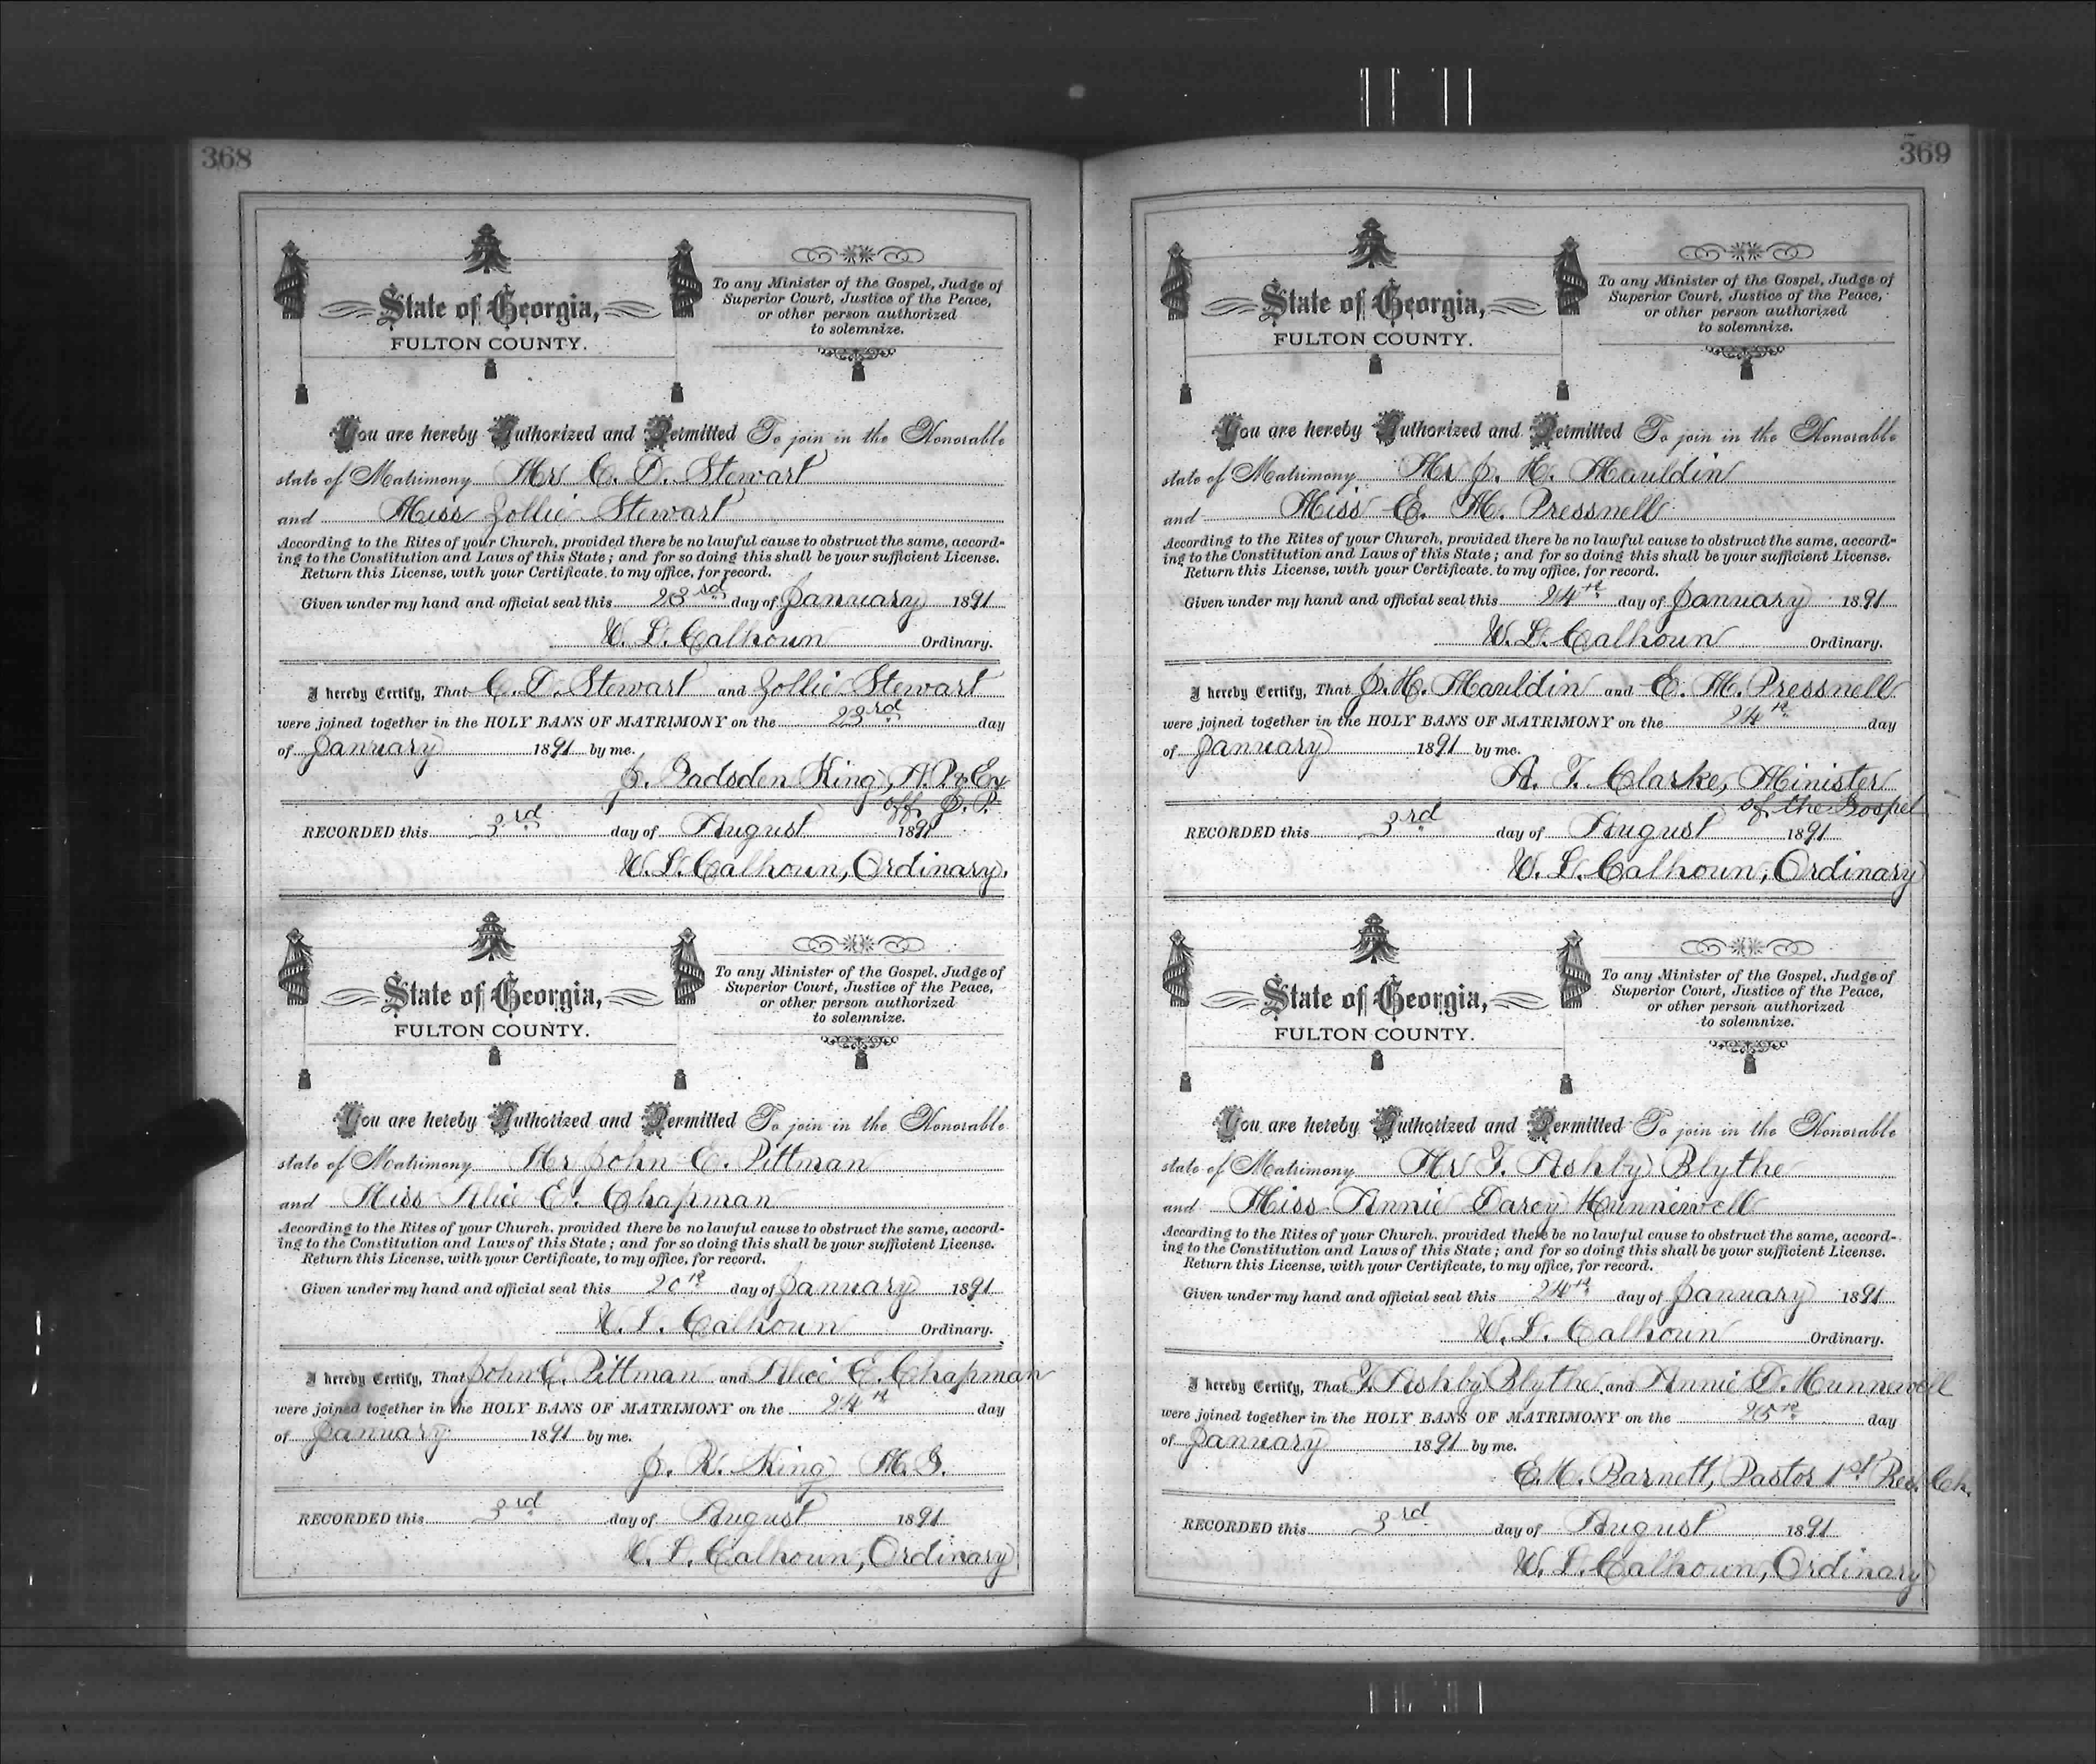 368
State of Georgia,
FULTON COUNTY.
To any Minister of the Gospel, Judge of
Superior Court, Justice of the Peace,
or other person authorized
to solemnize.
You are hereby Authorized and Permitted To join in the Honorable
state of Matrimony Mr C. D. Stewart
and Miss Zollie Stewart
According to the Rites of your Church, provided there be no lawful cause to obstruct the same, accord-
ing to the Constitution and Laws of this State; and for so doing this shall be your sufficient License.
Return this License, with your Certificate, to my office, for record.
Given under my hand and official seal this 23rd day of January 1891
W. L. Calhoun Ordinary.
I hereby Certify, That C. D. Stewart and Zollie Stewart
were joined together in the HOLY BANS OF MATRIMONY on the 23rd day
of January 1891 by me.
J. Gadsden King, N.P. & Ex
off. J. P.
RECORDED this 3rd day of August 1891
W. L. Calhoun, Ordinary.
State of Georgia,
FULTON COUNTY.
To any Minister of the Gospel, Judge of
Superior Court, Justice of the Peace,
or other person authorized
to solemnize.
You are hereby Authorized and Permitted To join in the Honorable
state of Matrimony Mr John E. Pittman
and Miss Alice E. Chapman
According to the Rites of your Church, provided there be no lawful cause to obstruct the same, accord-
ing to the Constitution and Laws of this State; and for so doing this shall be your sufficient License.
Return this License, with your Certificate, to my office, for record.
Given under my hand and official seal this 20th day of January 1891
W. L. Calhoun Ordinary.
I hereby Certify, That John E. Pittman and Alice E. Chapman
were joined together in the HOLY BANS OF MATRIMONY on the 24th day
of January 1891 by me.
J. R. King M. G.
RECORDED this 3rd day of August 1891
W. L. Calhoun, Ordinary
369
State of Georgia,
FULTON COUNTY.
To any Minister of the Gospel, Judge of
Superior Court, Justice of the Peace,
or other person authorized
to solemnize.
You are hereby Authorized and Permitted To join in the Honorable
state of Matrimony Mr J. H. Mauldin
and Miss E. M. Pressnell
According to the Rites of your Church, provided there be no lawful cause to obstruct the same, accord-
ing to the Constitution and Laws of this State; and for so doing this shall be your sufficient License.
Return this License, with your Certificate, to my office, for record.
Given under my hand and official seal this 24th day of January 1891
W. L. Calhoun Ordinary.
I hereby Certify, That J. H. Mauldin and E. M. Pressnell
were joined together in the HOLY BANS OF MATRIMONY on the 24th day
of January 1891 by me.
A. T. Clarke, Minister
of the Gospel
RECORDED this 3rd day of August 1891
W. L. Calhoun, Ordinary
State of Georgia,
FULTON COUNTY.
To any Minister of the Gospel, Judge of
Superior Court, Justice of the Peace,
or other person authorized
to solemnize.
You are hereby Authorized and Permitted To join in the Honorable
state of Matrimony Mr T. Ashby Blythe
and Miss Annie Darcy Hunniewell
According to the Rites of your Church, provided there be no lawful cause to obstruct the same, accord-
ing to the Constitution and Laws of this State; and for so doing this shall be your sufficient License.
Return this License, with your Certificate, to my office, for record.
Given under my hand and official seal this 24th day of January 1891
W. L. Calhoun Ordinary.
I hereby Certify, That T. Ashby Blythe and Annie D. Hunnewell
were joined together in the HOLY BANS OF MATRIMONY on the 25th day
of January 1891 by me.
E. H. Barnett, Pastor 1st Pres. Ch.
RECORDED this 3rd day of August 1891
W. L. Calhoun, Ordinary